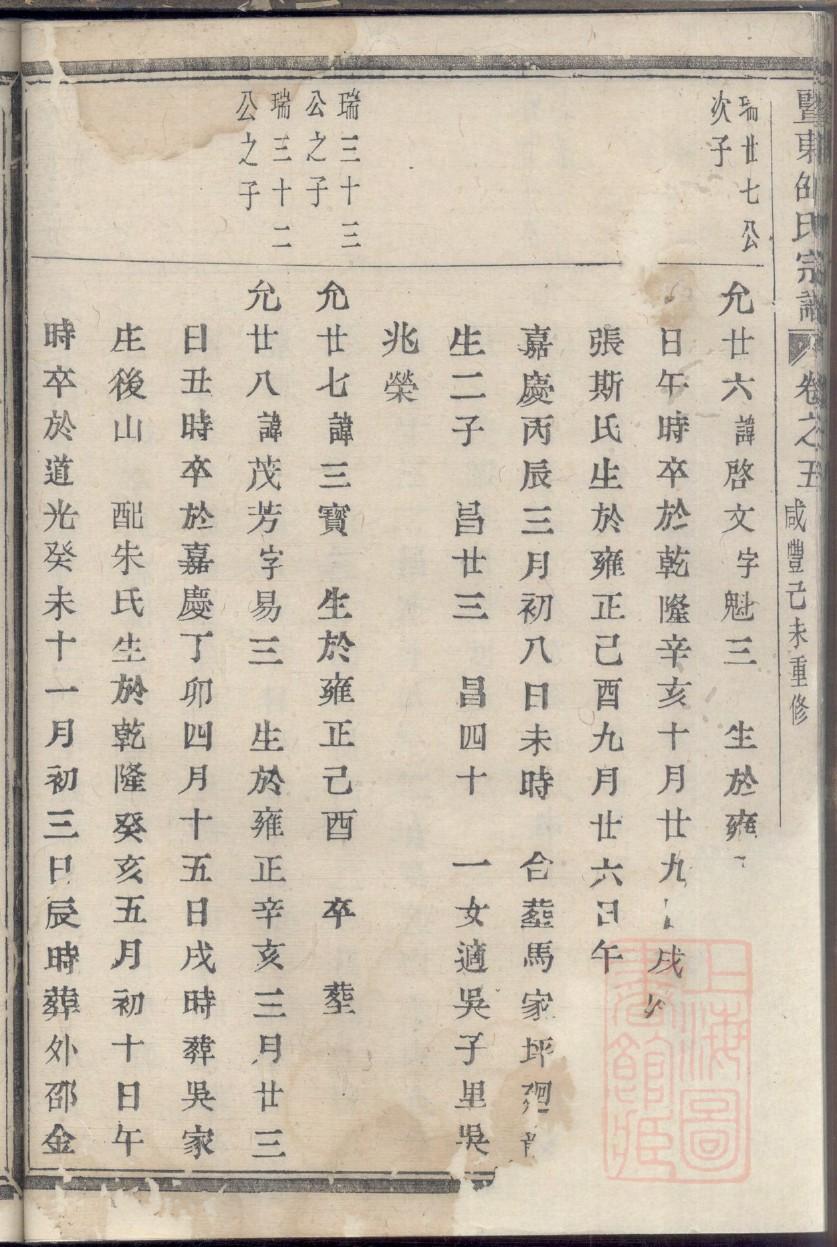 暨東邵氏宗譜 卷之五 咸豐己未重修
瑞廿七公
次子
允廿六諱啓文字魁三 生於雍
日午時卒於乾隆辛亥十月廿九 戌
張斯氏生於雍正己酉九月廿六日午
嘉慶丙辰三月初八日未時 合塟馬家坪廻
生二子 昌廿三 昌四十 一女適吳子里吳
兆榮
瑞三十三
公之子
允廿七諱三寳 生於雍正己酉 卒 塟
瑞三十二
公之子
允廿八諱茂芳字易三 生於雍正辛亥三月廿三
日丑時卒於嘉慶丁卯四月十五日戌時葬吳家
庄後山 配朱氏生於乾隆癸亥五月初十日午
時卒於道光癸未十一月初三日辰時葬外邵金
上海圖
書館藏